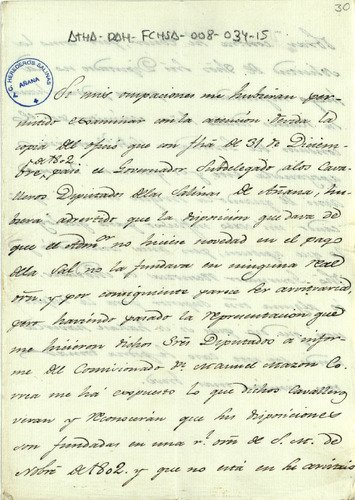 30
ATHA-DAH-FCHSA-008-034-15
F.C. HEREDEROS SALINAS
AÑANA
Si mis ocupaciones me hubieran per-
mitido examinar con la atencion devida la
copia del oficio que con fhã de 31 de Diciem-
bre de 1802 pasó el Governador Subdelegado alos Cava-
lleros Diputados delas Salinas de Añana, hu-
biera advertido que la disposicion que dava de
que el Admõr no hiciese novedad en el pago
dela Sal no la fundava en ninguna real
orñ. y por consiguiente parece ser arvitraria,
pero haviendo pasado la representacion que
me hicieron dichos Sres Diputados a infor-
me del Comisionado Dn. Manuel Mazon Co-
rrea me há expuesto lo que dichos Cavalleros
veran y reconoceran que las disposiciones
son fundadas en una rl. orñ de S. M. de
Nobre de 1802. y que no está en he arvitrio